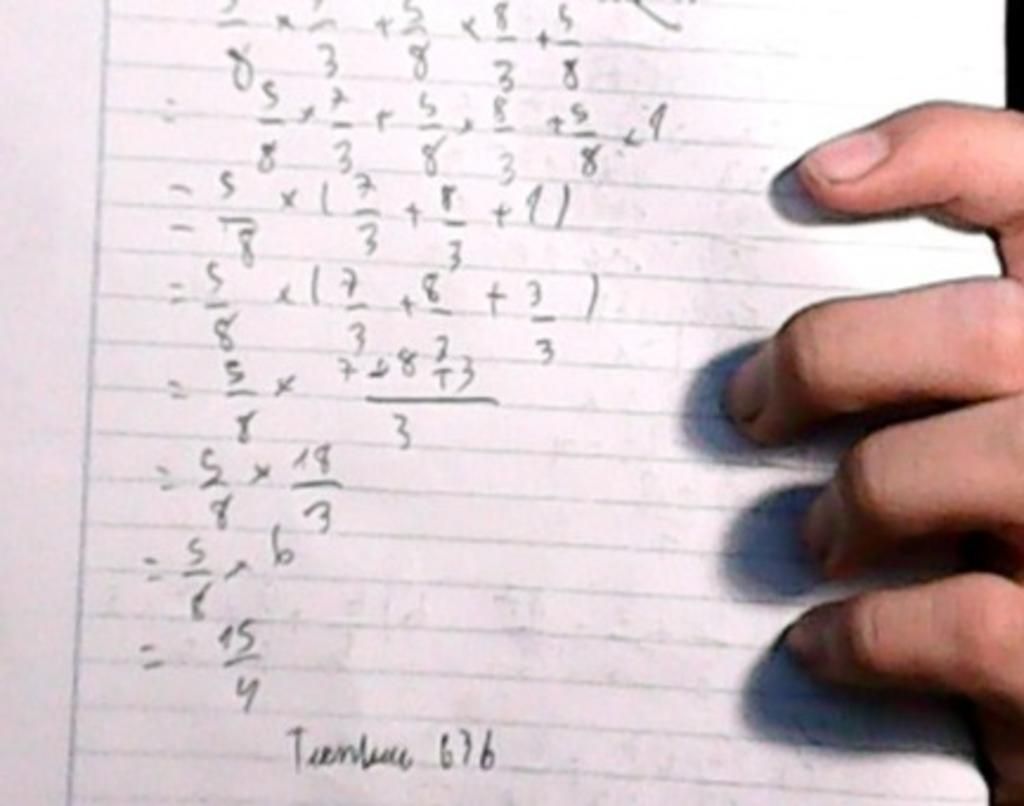 5/8 × 7/3 + 5/8 × 8/3 + 5/8
= 5/8 × 7/3 + 5/8 × 8/3 + 5/8 × 1
= 5/8 × ( 7/3 + 8/3 + 1 )
= 5/8 × ( 7/3 + 8/3 + 3/3 )
= 5/8 × (7+8+3)/3
= 5/8 × 18/3
= 5/8 × 6
= 15/4